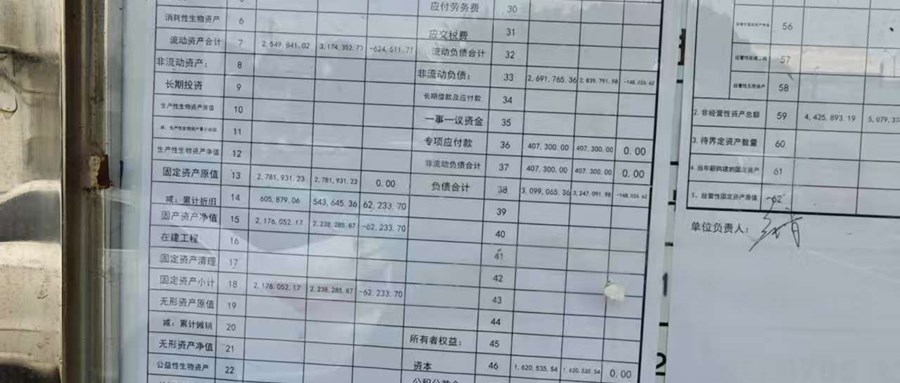 应付劳务费 30
消耗性生物资产 6 应交税费 31
流动资产合计 7 2,549,841.02 3,174,352.73 -624,511.71 流动负债合计 32
非流动资产： 8 非流动负债： 33 2,691,765.36 2,839,791.98 -148,026.62
长期投资 9 长期借款及应付款 34
生产性生物资产原值 10 一事一议资金 35
11 专项应付款 36 407,300.00 407,300.00 0.00
生产性生物资产净值 12 非流动负债合计 37 407,300.00 407,300.00
固定资产原值 13 2,781,931.23 2,781,931.23 0.00 负债合计 38 3,099,065.36 3,247,091.98 -148,026.62
减：累计折旧 14 605,879.06 543,645.36 62,233.70 39
固产资产净值 15 2,176,052.17 2,238,285.87 -62,233.70 40
在建工程 16 41
固定资产清理 17 42
固定资产小计 18 2,176,052.17 2,238,285.87 -62,233.70 43
无形资产原值 19 44
减：累计摊销 20 所有者权益： 45
无形资产净值 21 资本 46 1,620,535.54 1,620,535.54 0.00
公益性生物资产 22
56
57
58
2. 非经营性资产总额 59 4,425,893.19
3. 待界定资产数量 60
61
5. 经营性固定资产原值 62
单位负责人：